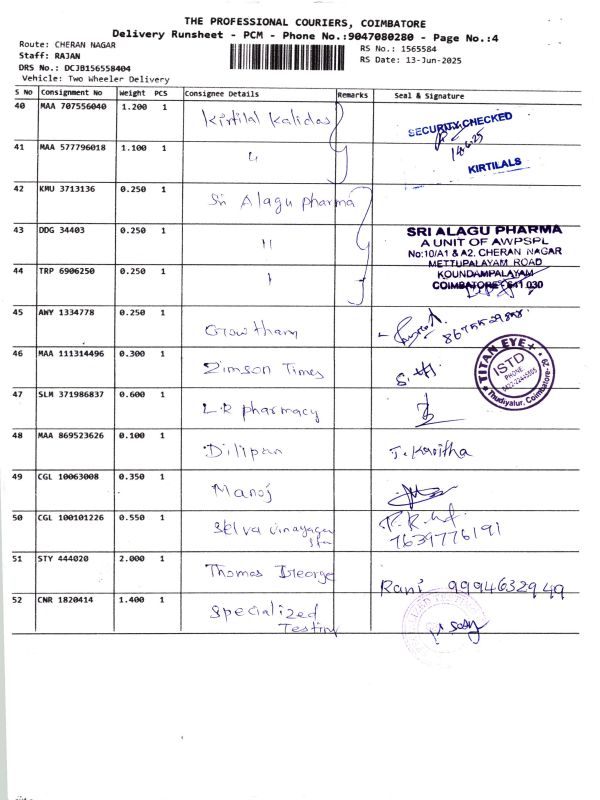 THE PROFESSIONAL COURIERS, COIMBATORE
Delivery Runsheet - PCM - Phone No.:9047080280 - Page No.:4
Route: CHERAN NAGAR
Staff: RAJAN
DRS No.: DCJB156558404
Vehicle: Two Wheeler Delivery
RS No.: 1565584
RS Date: 13-Jun-2025
S No Consignment No Weight PCS Consignee Details Remarks Seal & Signature
40 MAA 707556040 1.200 1 Kirtilal Kalidas
SECURITY CHECKED
14.6.25
KIRTILALS
41 MAA 577796018 1.100 1 "
42 KMU 3713136 0.250 1 Sri Alagu pharma
43 DDG 34403 0.250 1 "
SRI ALAGU PHARMA
A UNIT OF AWPSPL
No:10/A1 & A2, CHERAN NAGAR
METTUPALAYAM ROAD
KOUNDAMPALAYAM
COIMBATORE - 641 030
44 TRP 6906250 0.250 1 "
45 AWY 1334778 0.250 1 Gowtham
46 MAA 111314496 0.300 1 Zimson Times
TITAN EYE+
ISTD
PHONE
Thudiyalur, Coimbatore-
47 SLM 371986837 0.600 1 L.R pharmacy
48 MAA 869523626 0.100 1 Dilipan J. Kavitha
49 CGL 10063008 0.350 1 Manoj
50 CGL 100101226 0.550 1 Selva vinayagar
7639776191
51 STY 444020 2.000 1 Thomas George Rani 9994632949
52 CNR 1820414 1.400 1 Specialized
Testing